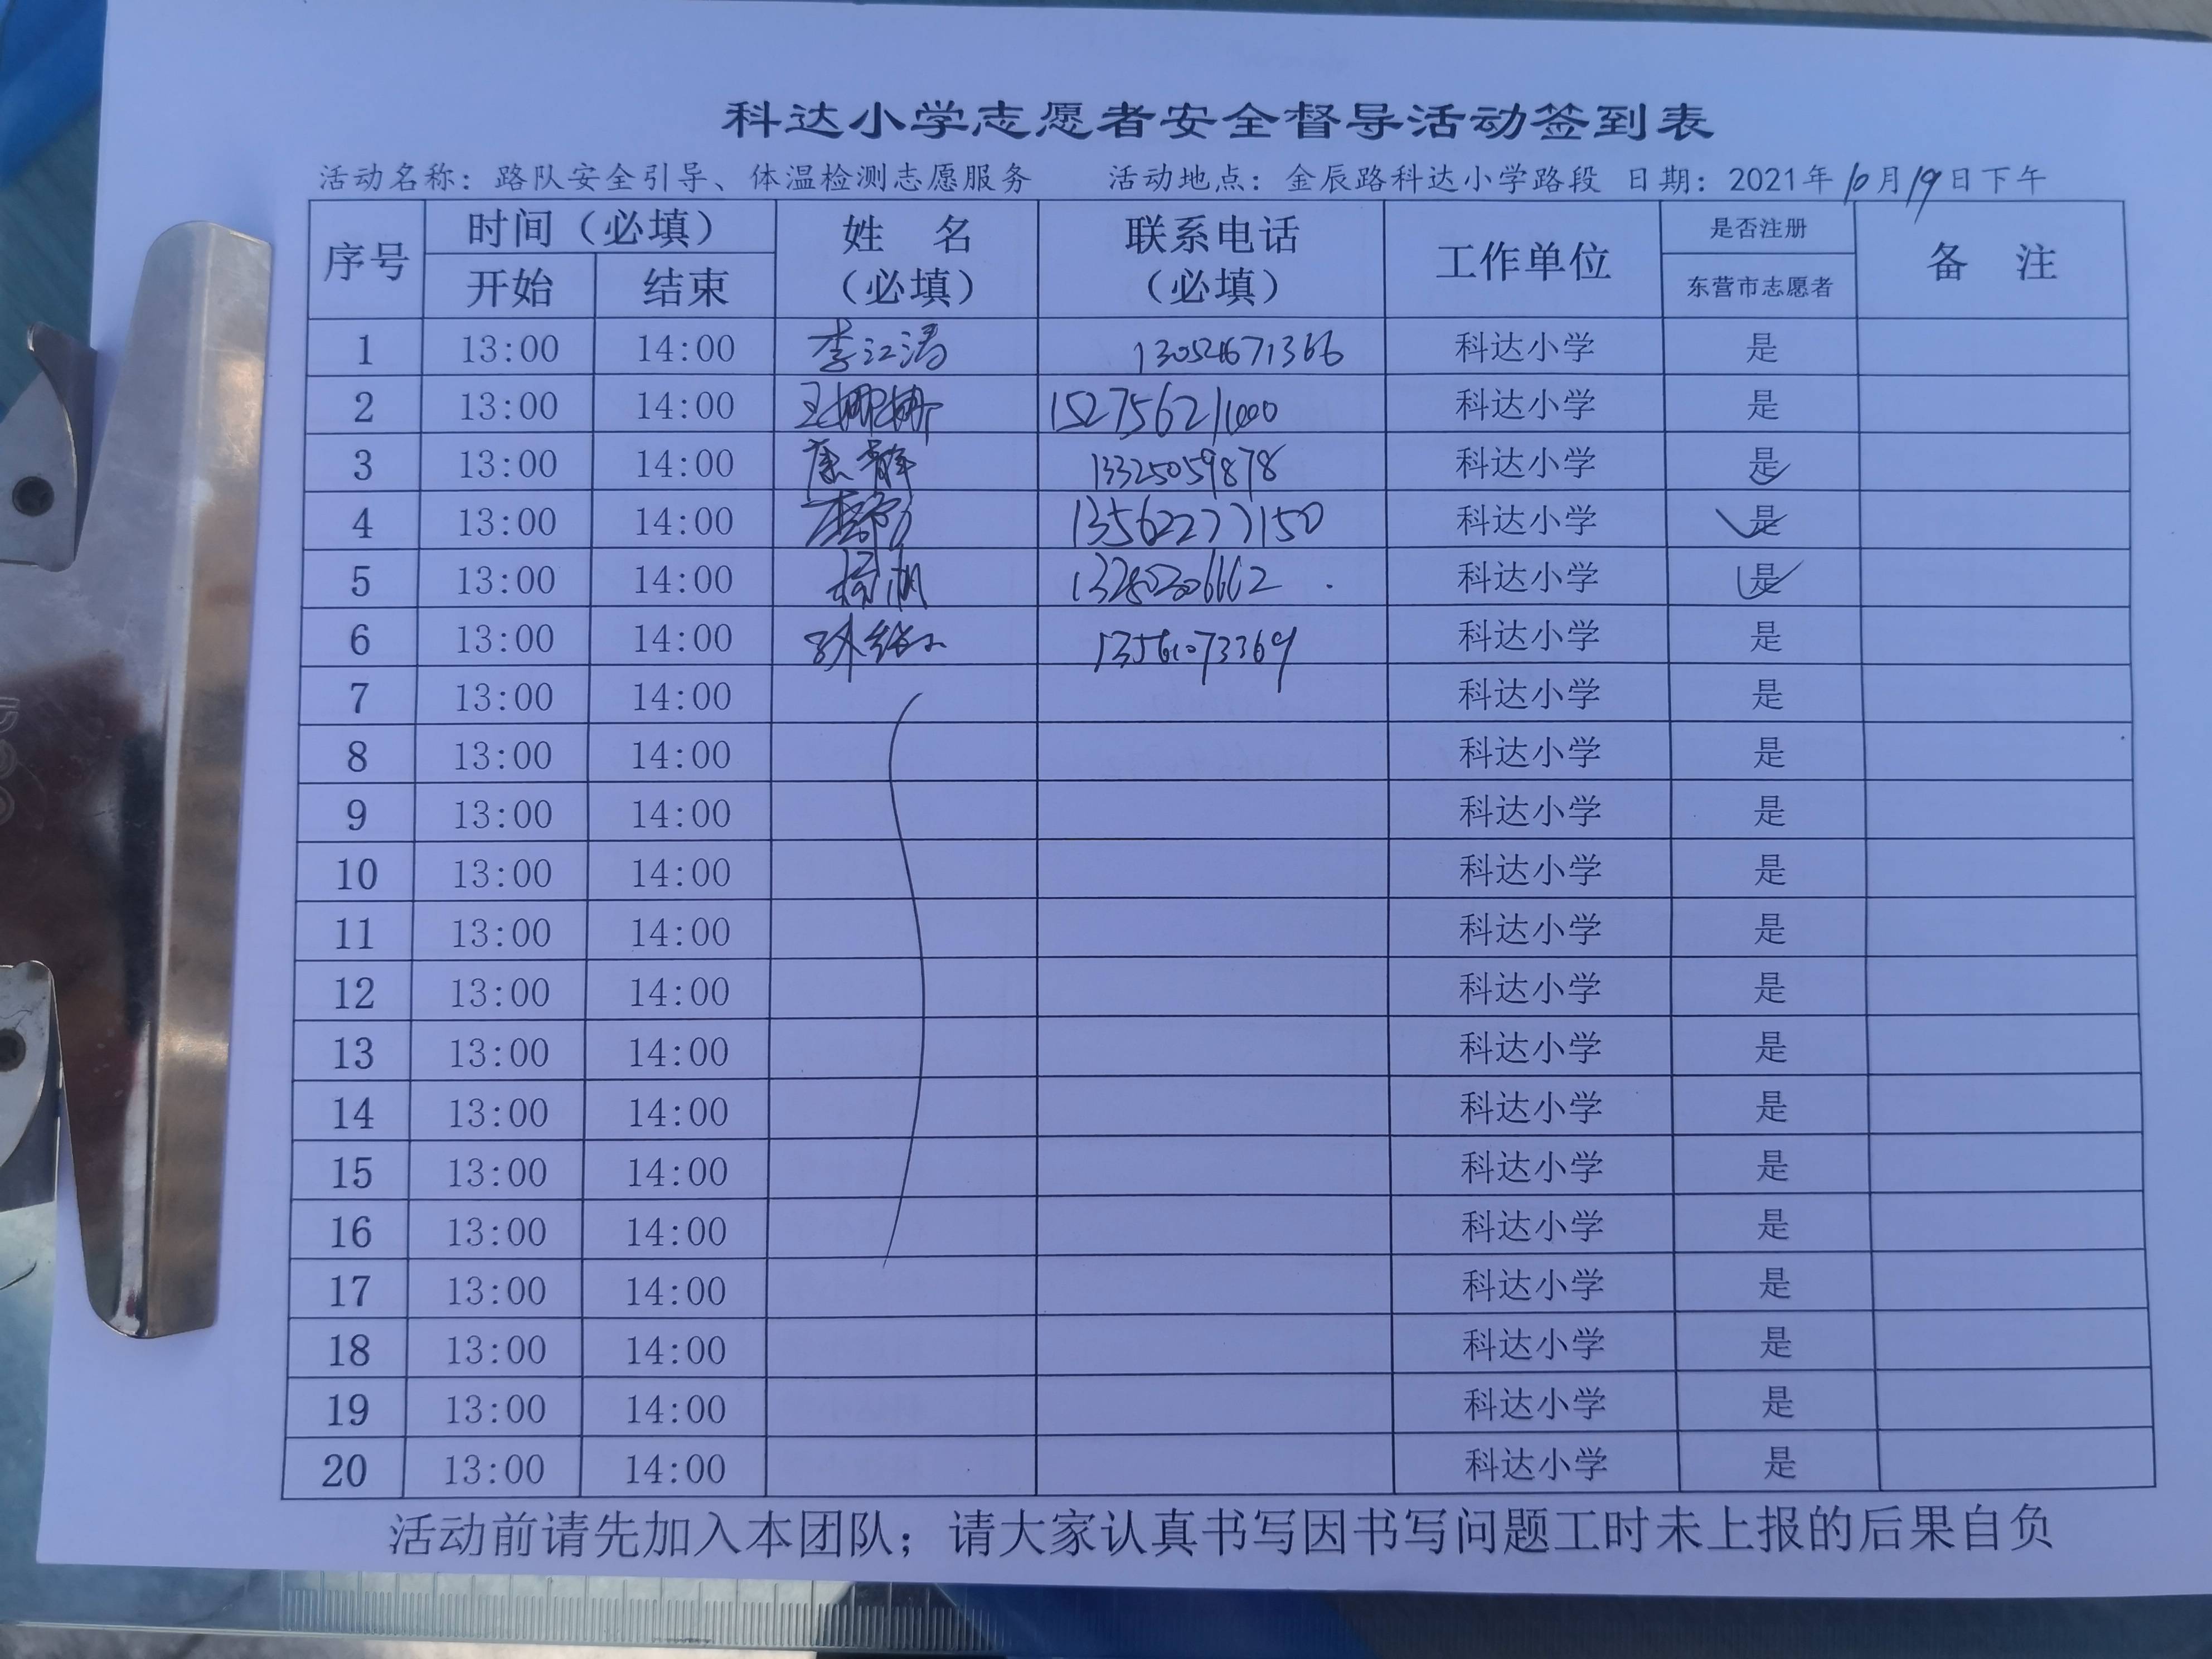 科达小学志愿者安全督导活动签到表
活动名称：路队安全引导、体温检测志愿服务 活动地点：金辰路科达小学路段 日期：2021年10月19日下午
序号 时间（必填） 姓 名 联系电话 工作单位 是否注册 备 注
开始 结束 （必填） （必填） 东营市志愿者
1 13:00 14:00 李江涛 科达小学 是
2 13:00 14:00 王娜娜 15275621000 科达小学 是
3 13:00 14:00 康静 13325059878 科达小学 是
4 13:00 14:00 13562277150 科达小学 是
5 13:00 14:00 杨帆 13280206662 科达小学 是
6 13:00 14:00 13561073369 科达小学 是
7 13:00 14:00 科达小学 是
8 13:00 14:00 科达小学 是
9 13:00 14:00 科达小学 是
10 13:00 14:00 科达小学 是
11 13:00 14:00 科达小学 是
12 13:00 14:00 科达小学 是
13 13:00 14:00 科达小学 是
14 13:00 14:00 科达小学 是
15 13:00 14:00 科达小学 是
16 13:00 14:00 科达小学 是
17 13:00 14:00 科达小学 是
18 13:00 14:00 科达小学 是
19 13:00 14:00 科达小学 是
20 13:00 14:00 科达小学 是
活动前请先加入本团队；请大家认真书写因书写问题工时未上报的后果自负